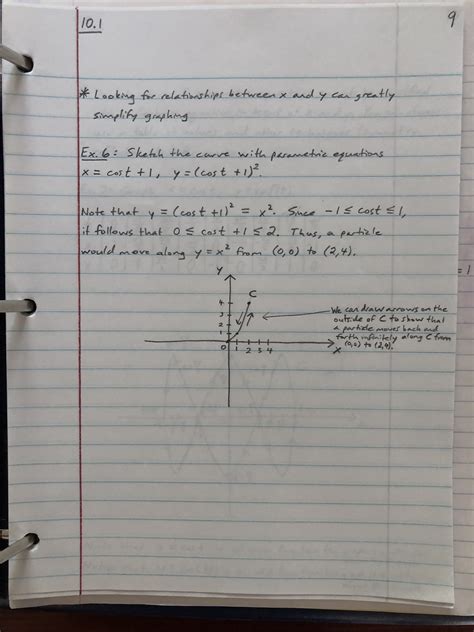 10.1
9
* Looking for relationships between x and y can greatly
simplify graphing.
Ex. 6: Sketch the curve with parametric equations
x = cos t + 1, y = (cos t + 1)².
Note that y = (cos t + 1)² = x². Since -1 ≤ cos t ≤ 1,
it follows that 0 ≤ cos t + 1 ≤ 2. Thus, a particle
would move along y = x² from (0,0) to (2,4).
= 1
y
C
4
3
2
1
0 1 2 3 4
x
We can draw arrows on the
outside of C to show that
a particle moves back and
forth infinitely along C from
(0,0) to (2,4).